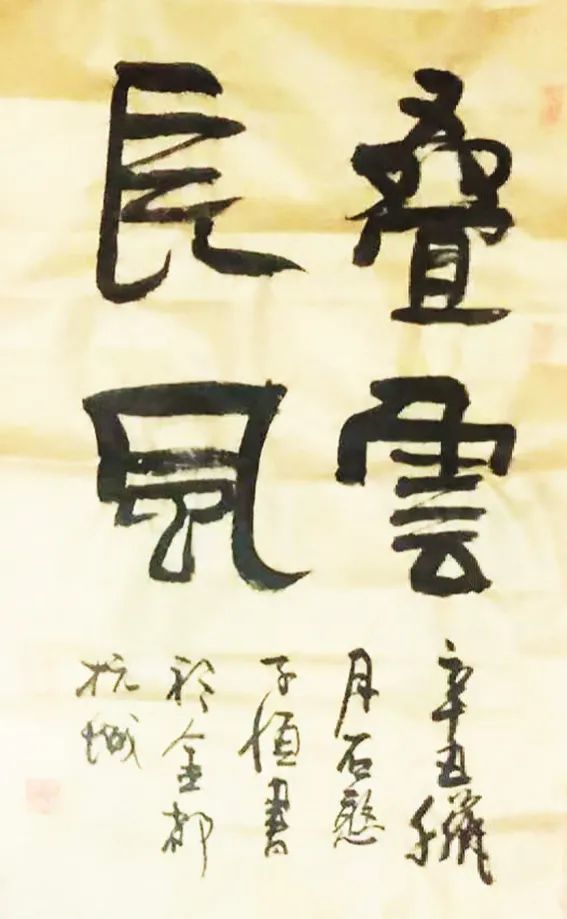 疊雲
長風
辛丑臘
月石憨
子恒書
於金都
杭城